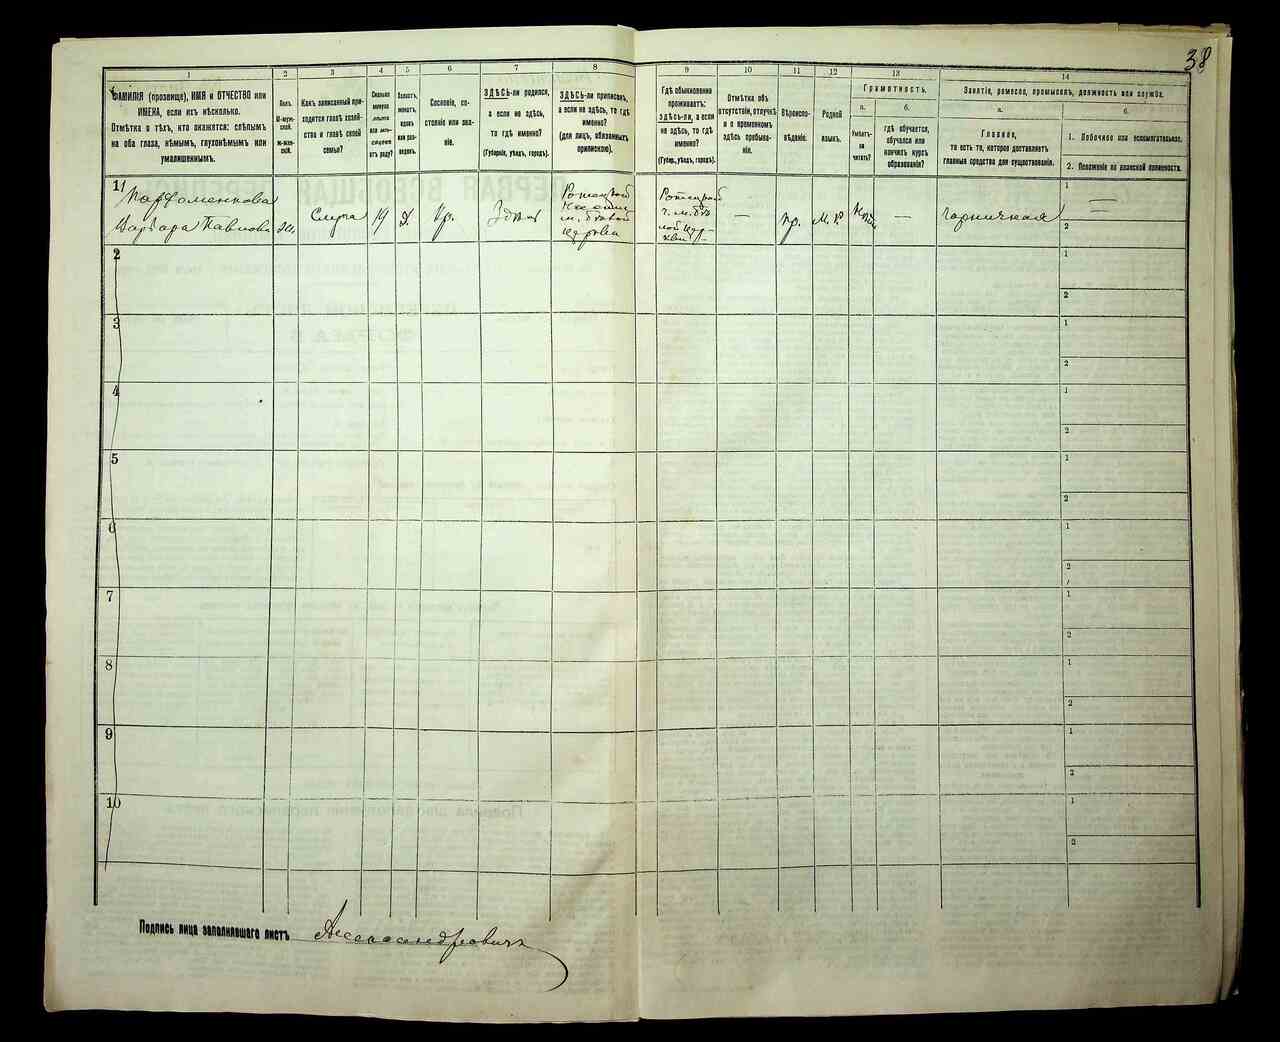 38
1
2
3
4
5
6
7
8
9
10
11
12
13
14
ФАМИЛІЯ (прозвище), ИМЯ и ОТЧЕСТВО или
ИМЕНА, если ихъ нѣсколько.
Отмѣтка о тѣхъ, кто окажется: слѣпымъ
на оба глаза, нѣмымъ, глухонѣмымъ или
умалишеннымъ.
Полъ.
М-муж-
ской.
Ж-жен-
скій.
Какъ записанный при-
ходится главѣ хозяй-
ства и главѣ своей
семьи?
Сколько
минуло
лѣтъ
или мѣся-
цевъ
отъ роду?
Холостъ,
женатъ,
вдовъ
или раз-
веденъ.
Сословіе, со-
стояніе или зва-
ніе.
ЗДѢСЬ-ли родился,
а если не здѣсь,
то гдѣ именно?
(Губернія, уѣздъ, городъ).
ЗДѢСЬ-ли приписанъ,
а если не здѣсь, то гдѣ
именно?
(для лицъ, обязанныхъ
припискою).
Гдѣ обыкновенно
проживаетъ:
здѣсь-ли, а если
не здѣсь, то гдѣ
именно?
(Губерн., уѣздъ, городъ).
Отмѣтка объ
отсутствіи, отлучкѣ
и о временномъ
здѣсь пребыва-
ніи.
Вѣроиспо-
вѣданіе.
Родной
языкъ.
Грамотность.
а.
б.
Умѣетъ-
ли
читать?
гдѣ обучается,
обучался или
кончилъ курсъ
образованія?
Занятіе, ремесло, промыселъ, должность или служба.
а.
б.
Главное,
то есть то, которое доставляетъ
главныя средства для существованія.
1. Побочное или вспомогательное.
2. Положеніе по воинской повинности.
1
Парфоменкова
Варвара Павловна
ж.
Слуга
14
д.
Кр.
Здѣсь
—
пр.
М. Р.
—
горничная
1
2
2
1
2
3
1
2
4
1
2
5
1
2
6
1
2
7
1
2
8
1
2
9
1
2
10
1
2
Подпись лица заполнявшаго листъ Александровичъ